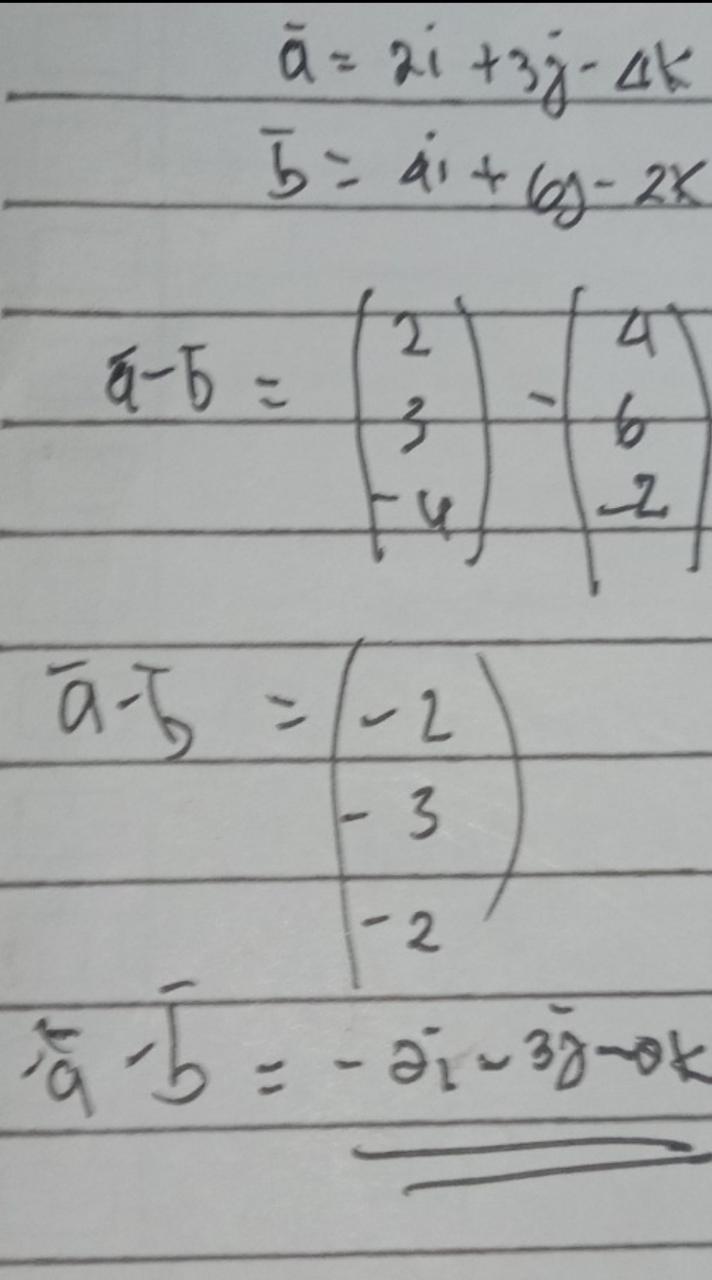 ā = 2i + 3j - 4k
b̄ = 4i + 6j - 2k
ā - b̄ = (2 3 -4) - (4 6 -2)
ā - b̄ = (-2 -3 -2)
ā - b̄ = -2i - 3j - 2k